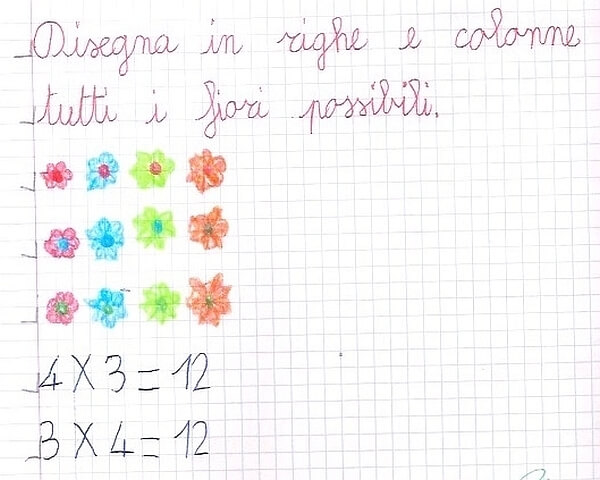 Disegna in righe e colonne
tutti i fiori possibili.
4 X 3 = 12
3 X 4 = 12